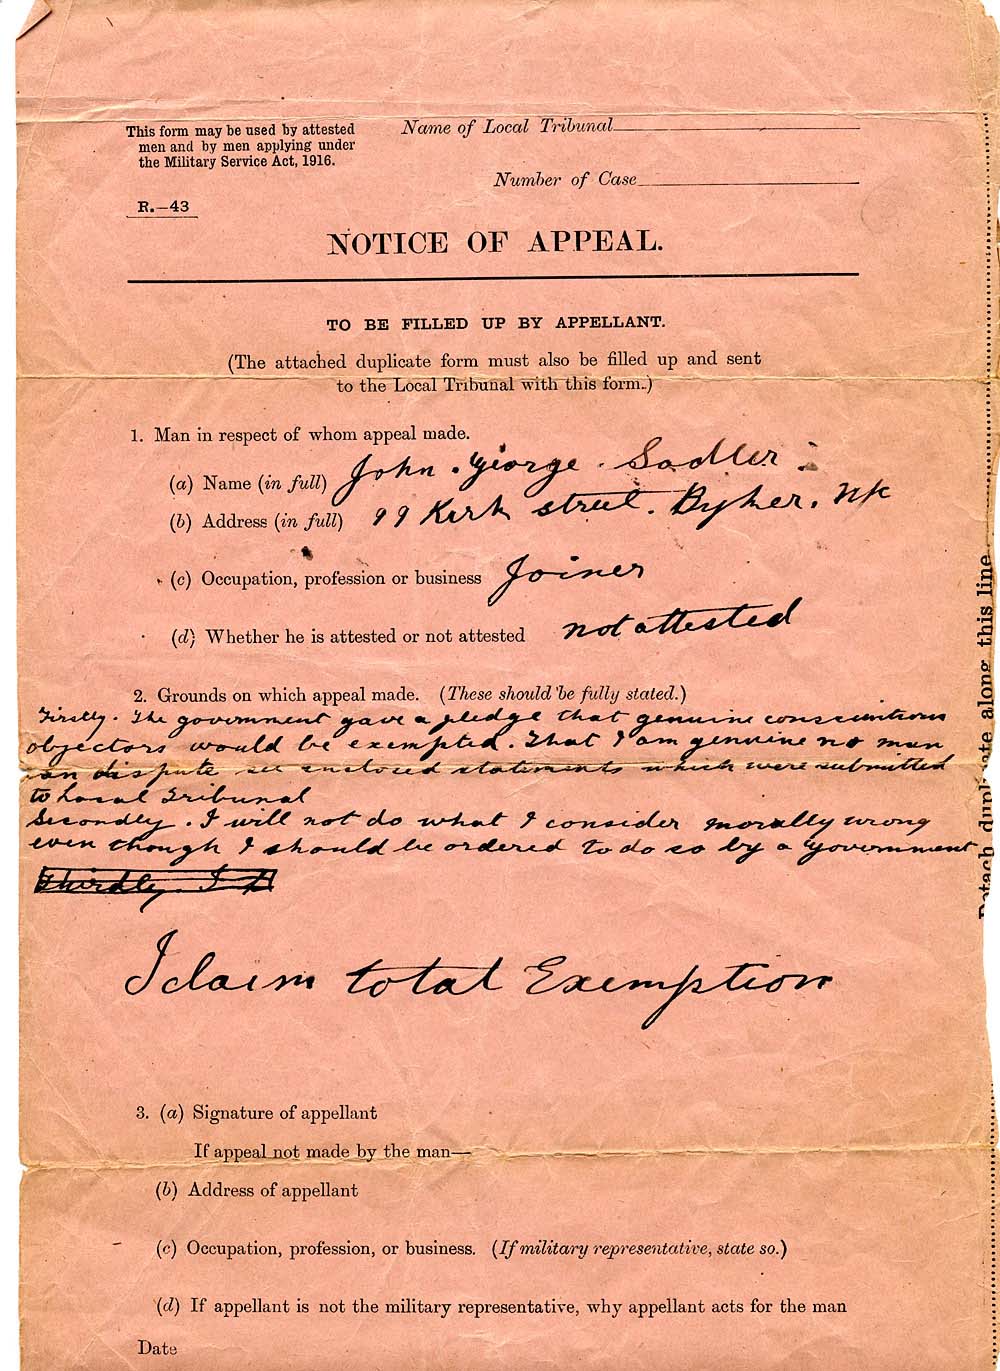 This form may be used by attested
men and by men applying under
the Military Service Act, 1916.
Name of Local Tribunal
Number of Case
R.—43
NOTICE OF APPEAL.
TO BE FILLED UP BY APPELLANT.
(The attached duplicate form must also be filled up and sent
to the Local Tribunal with this form.)
1. Man in respect of whom appeal made.
(a) Name (in full) John . George . Sadler .
(b) Address (in full) 99 Kirk street . Byker .
(c) Occupation, profession or business Joiner
(d) Whether he is attested or not attested not attested
2. Grounds on which appeal made. (These should be fully stated.)
Firstly. The government gave a pledge that genuine conscientious
objectors would be exempted. That I am genuine no man
can dispute see enclosed statements which were submitted
to Local Tribunal
Secondly. I will not do what I consider morally wrong
even though I should be ordered to do so by a Government
Thirdly I
I claim total Exemption
3. (a) Signature of appellant
If appeal not made by the man—
(b) Address of appellant
(c) Occupation, profession, or business. (If military representative, state so.)
(d) If appellant is not the military representative, why appellant acts for the man
Date
Detach duplicate along this line